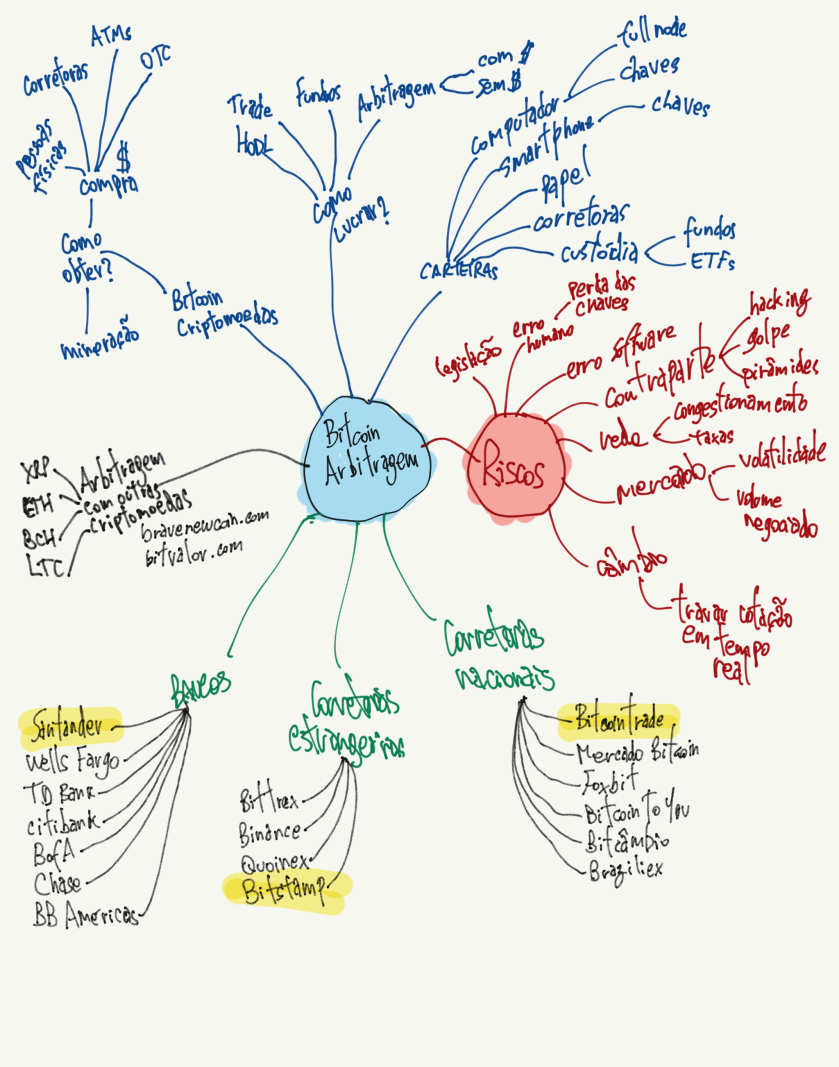 ATMs
Corretoras
OTC
pessoas
físicas
$
compra
Como
obter?
mineração
Bitcoin
Criptomoedas
Trade
HODL
Fundos
Arbitragem
com $
sem $
Como
Lucrar?
full node
chaves
computador
smartphone
chaves
papel
corretoras
custódia
fundos
ETFs
CARTEIRAS
Bitcoin
Arbitragem
Riscos
legislação
erro
humano
perda das
chaves
erro software
contraparte
hacking
golpe
pirâmides
rede
congestionamento
taxas
mercado
volatilidade
volume
negociado
câmbio
travar cotação
em tempo
real
Arbitragem
com outras
criptomoedas
XRP
ETH
BCH
LTC
bravenewcoin.com
bitvalor.com
BANCOS
Santander
Wells Fargo
TD Bank
citibank
BofA
Chase
BB Americas
Corretoras
estrangeiras
Bittrex
Binance
Quoinex
Bitstamp
Corretoras
nacionais
BitcoinTrade
Mercado Bitcoin
Foxbit
BitcoinToYou
Bitcâmbio
Braziliex